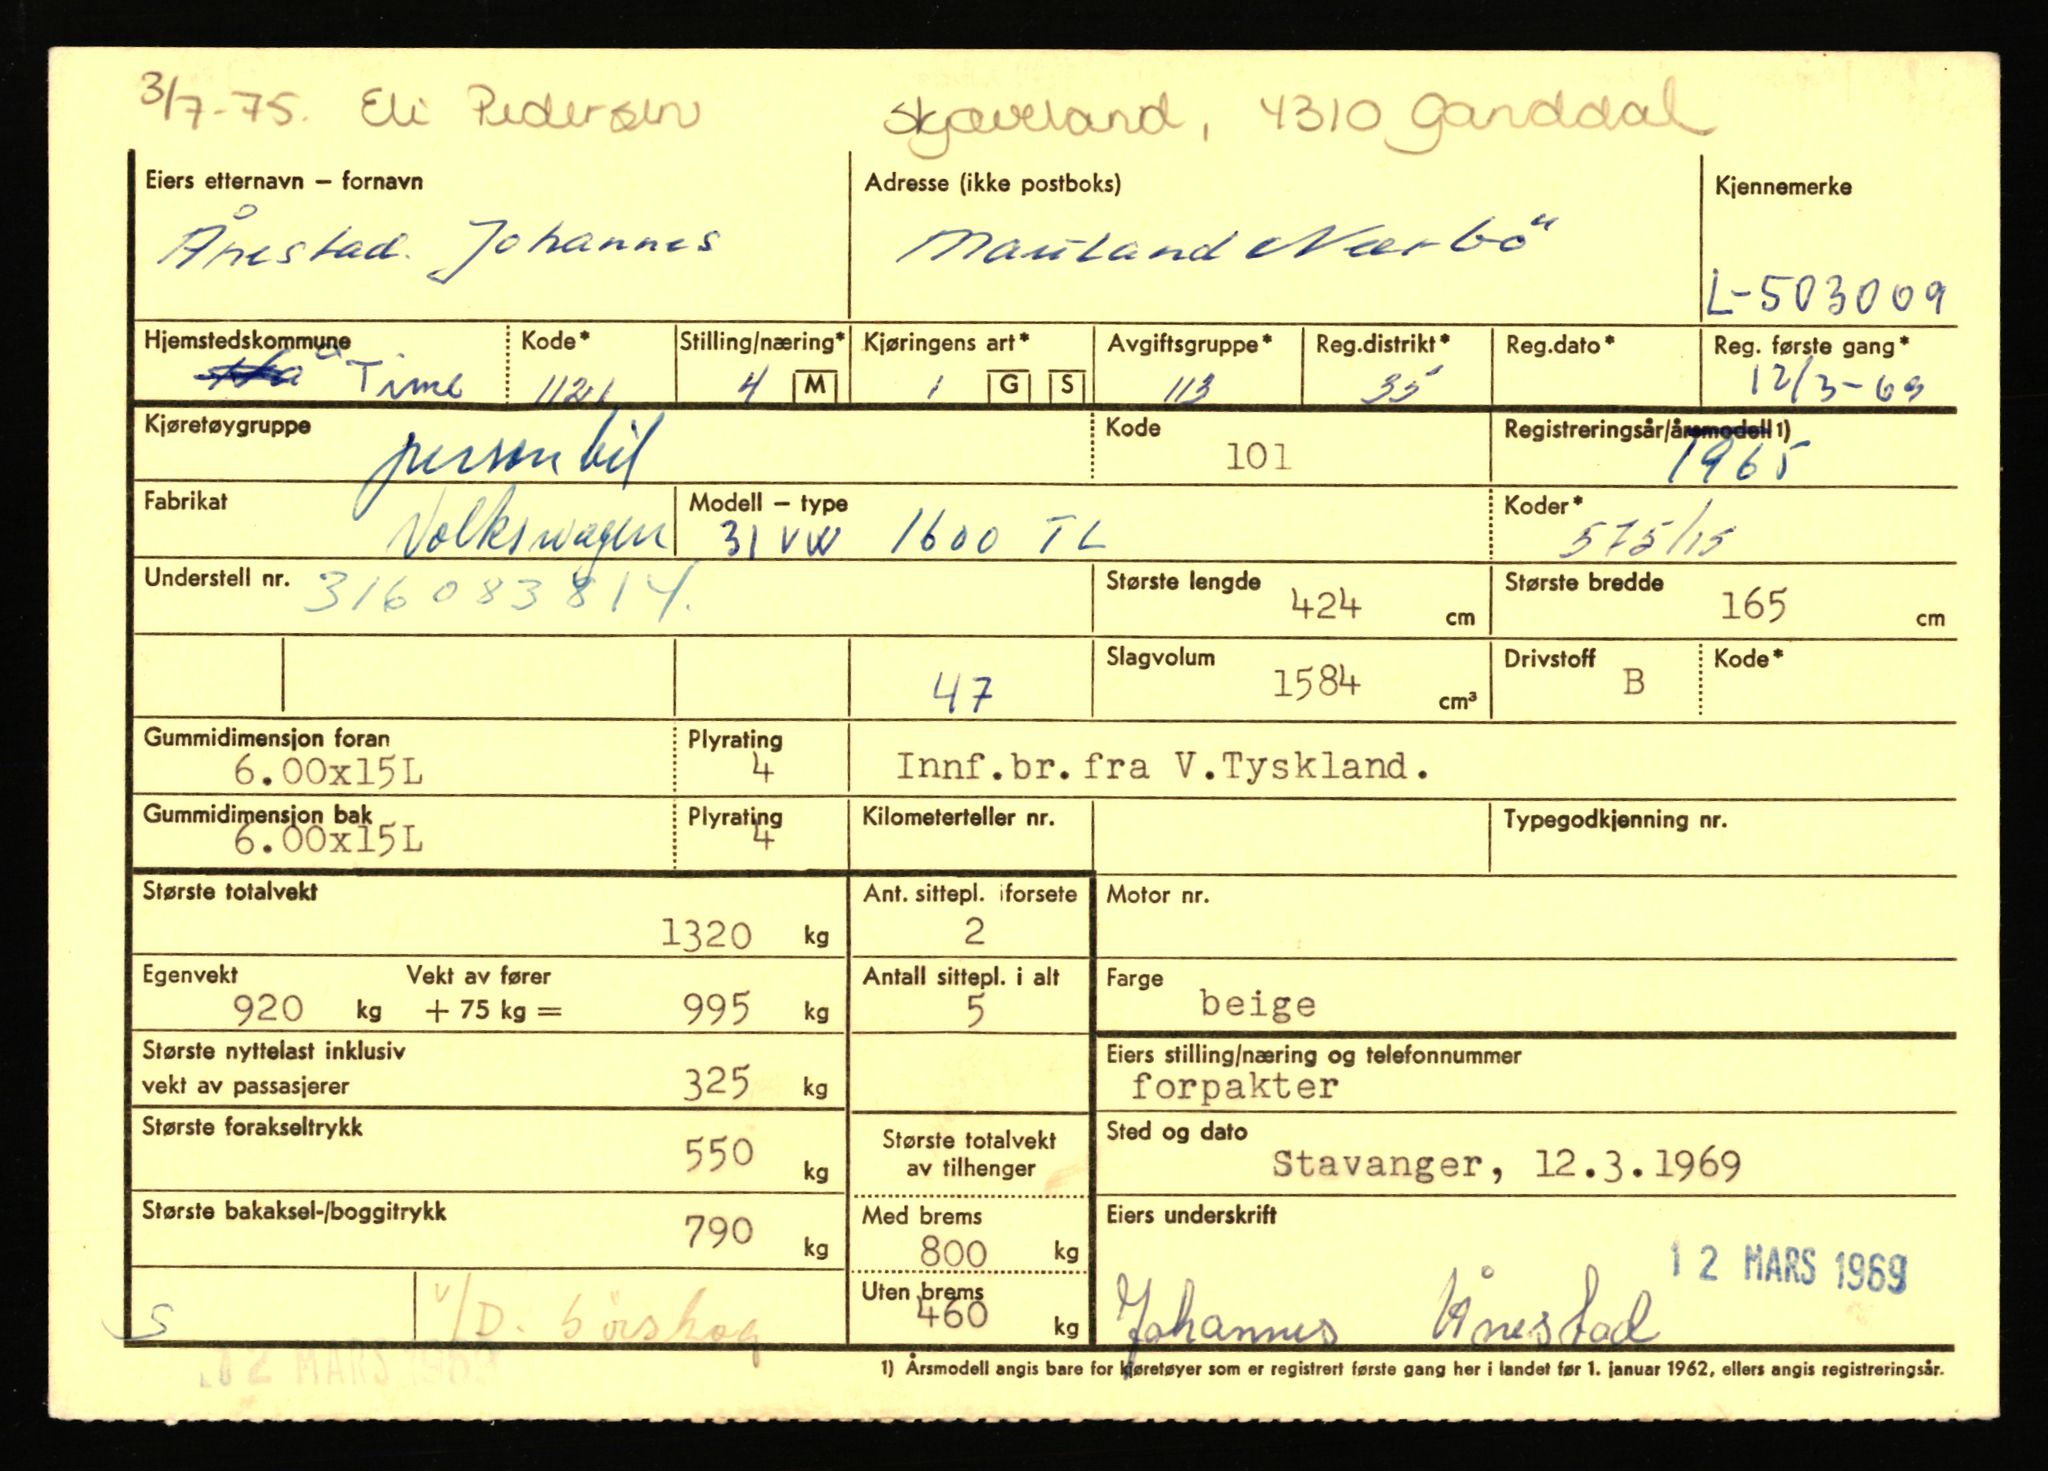 3/7-75. Eli Pedersen Skjæveland, 4310 Ganddal
Eiers etternavn – fornavn Adresse (ikke postboks) Kjennemerke
Ånestad. Johannes Mauland Nærbö
L-503009
Hjemstedskommune Kode* Stilling/næring* Kjøringens art* Avgiftsgruppe* Reg.distrikt* Reg.dato* Reg. første gang*
Time 1121 4 M 1 G S 113 35 12/3-69
Kjøretøygruppe Kode Registreringsår/årsmodell 1)
personbil 101 1965
Fabrikat Modell – type Koder*
Volkswagen 31 VW 1600 TL 575/15
Understell nr. 316083814. Største lengde Største bredde
424 cm 165 cm
Slagvolum Drivstoff Kode*
47 1584 cm³ B
Gummidimensjon foran Plyrating
6.00x15L 4 Innf.br.fra V.Tyskland.
Gummidimensjon bak Plyrating Kilometerteller nr. Typegodkjenning nr.
6.00x15L 4
Største totalvekt Ant. sittepl. iforsete Motor nr.
1320 kg 2
Egenvekt Vekt av fører Antall sittepl. i alt Farge
920 kg + 75 kg = 995 kg 5 beige
Største nyttelast inklusiv Eiers stilling/næring og telefonnummer
vekt av passasjerer 325 kg forpakter
Største forakseltrykk Største totalvekt Sted og dato
550 kg av tilhenger Stavanger, 12.3.1969
Største bakaksel-/boggitrykk Med brems Eiers underskrift
790 kg 800 kg 12 MARS 1969
Uten brems
S v/D. börskog 460 kg Johannes Ånestad
12 MARS 1969
1) Årsmodell angis bare for kjøretøyer som er registrert første gang her i landet før 1. januar 1962, ellers angis registreringsår.